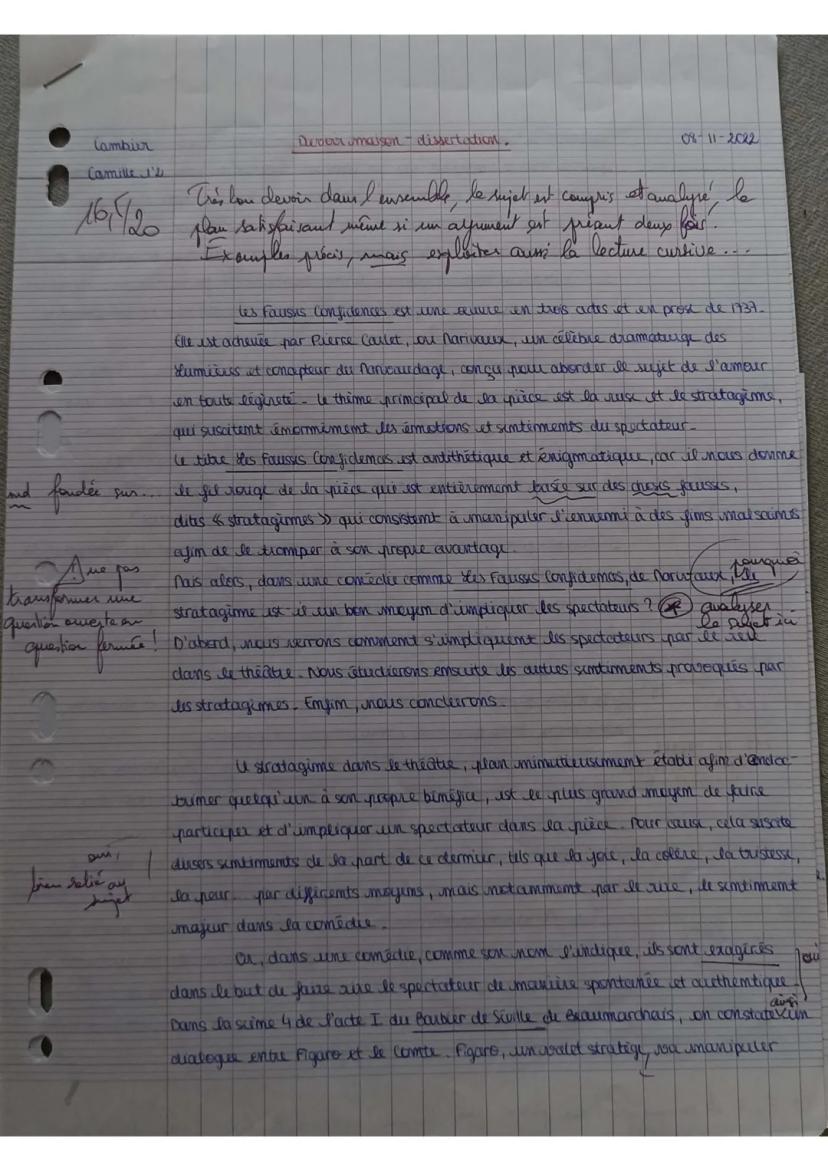 Cambier
Devoir maison - dissertation.
08-11-2022
Camille
16,5/20
Très bon devoir dans l'ensemble, le sujet est compris et analysé, le
plan satisfaisant même si un argument est présent deux fois.
Exemples précis, mais exploiter aussi la lecture cursive...
Les Fausses Confidences est une œuvre en trois actes et en prose de 1737.
Elle est achevée par Pierre Carlet, ou Marivaux, un célèbre dramaturge des
Lumières et concepteur du Marivaudage, conçu pour aborder le sujet de l'amour
en toute légèreté. Le thème principal de la pièce est la ruse et le stratagème,
qui suscitent énormément les émotions et sentiments du spectateur.
Le titre Les Fausses Confidences est antithétique et énigmatique, car il nous donne
md fondée sur...
le fil rouge de la pièce qui est entièrement basée sur des choses fausses,
dites « stratagèmes » qui consistent à manipuler l'ennemi à des fins malsaines
afin de le tromper à son propre avantage.
Ne pas
transformer une
question ouverte en
question fermée !
Mais alors, dans une comédie comme Les Fausses Confidences, de Marivaux, le
pourquoi
stratagème est-il un bon moyen d'impliquer les spectateurs ?
analyser
le sujet ici
D'abord, nous verrons comment s'impliquent les spectateurs par le rire
dans le théâtre. Nous étudierons ensuite les autres sentiments provoqués par
les stratagèmes. Enfin, nous conclurons.
Le stratagème dans le théâtre, plan minutieusement établi afin d'endoc-
triner quelqu'un à son propre bénéfice, est le plus grand moyen de faire
participer et d'impliquer un spectateur dans la pièce. Pour cause, cela suscite
oui,
bien relié au
sujet
divers sentiments de la part de ce dernier, tels que la joie, la colère, la tristesse,
la peur... par différents moyens, mais notamment par le rire, le sentiment
majeur dans la comédie.
Or, dans une comédie, comme son nom l'indique, ils sont exagérés
oui
dans le but de faire rire le spectateur de manière spontanée et authentique.
ainsi
Dans la scène 4 de l'acte I du Barbier de Séville de Beaumarchais, on constate un
dialogue entre Figaro et le Comte. Figaro, un valet stratège, va manipuler